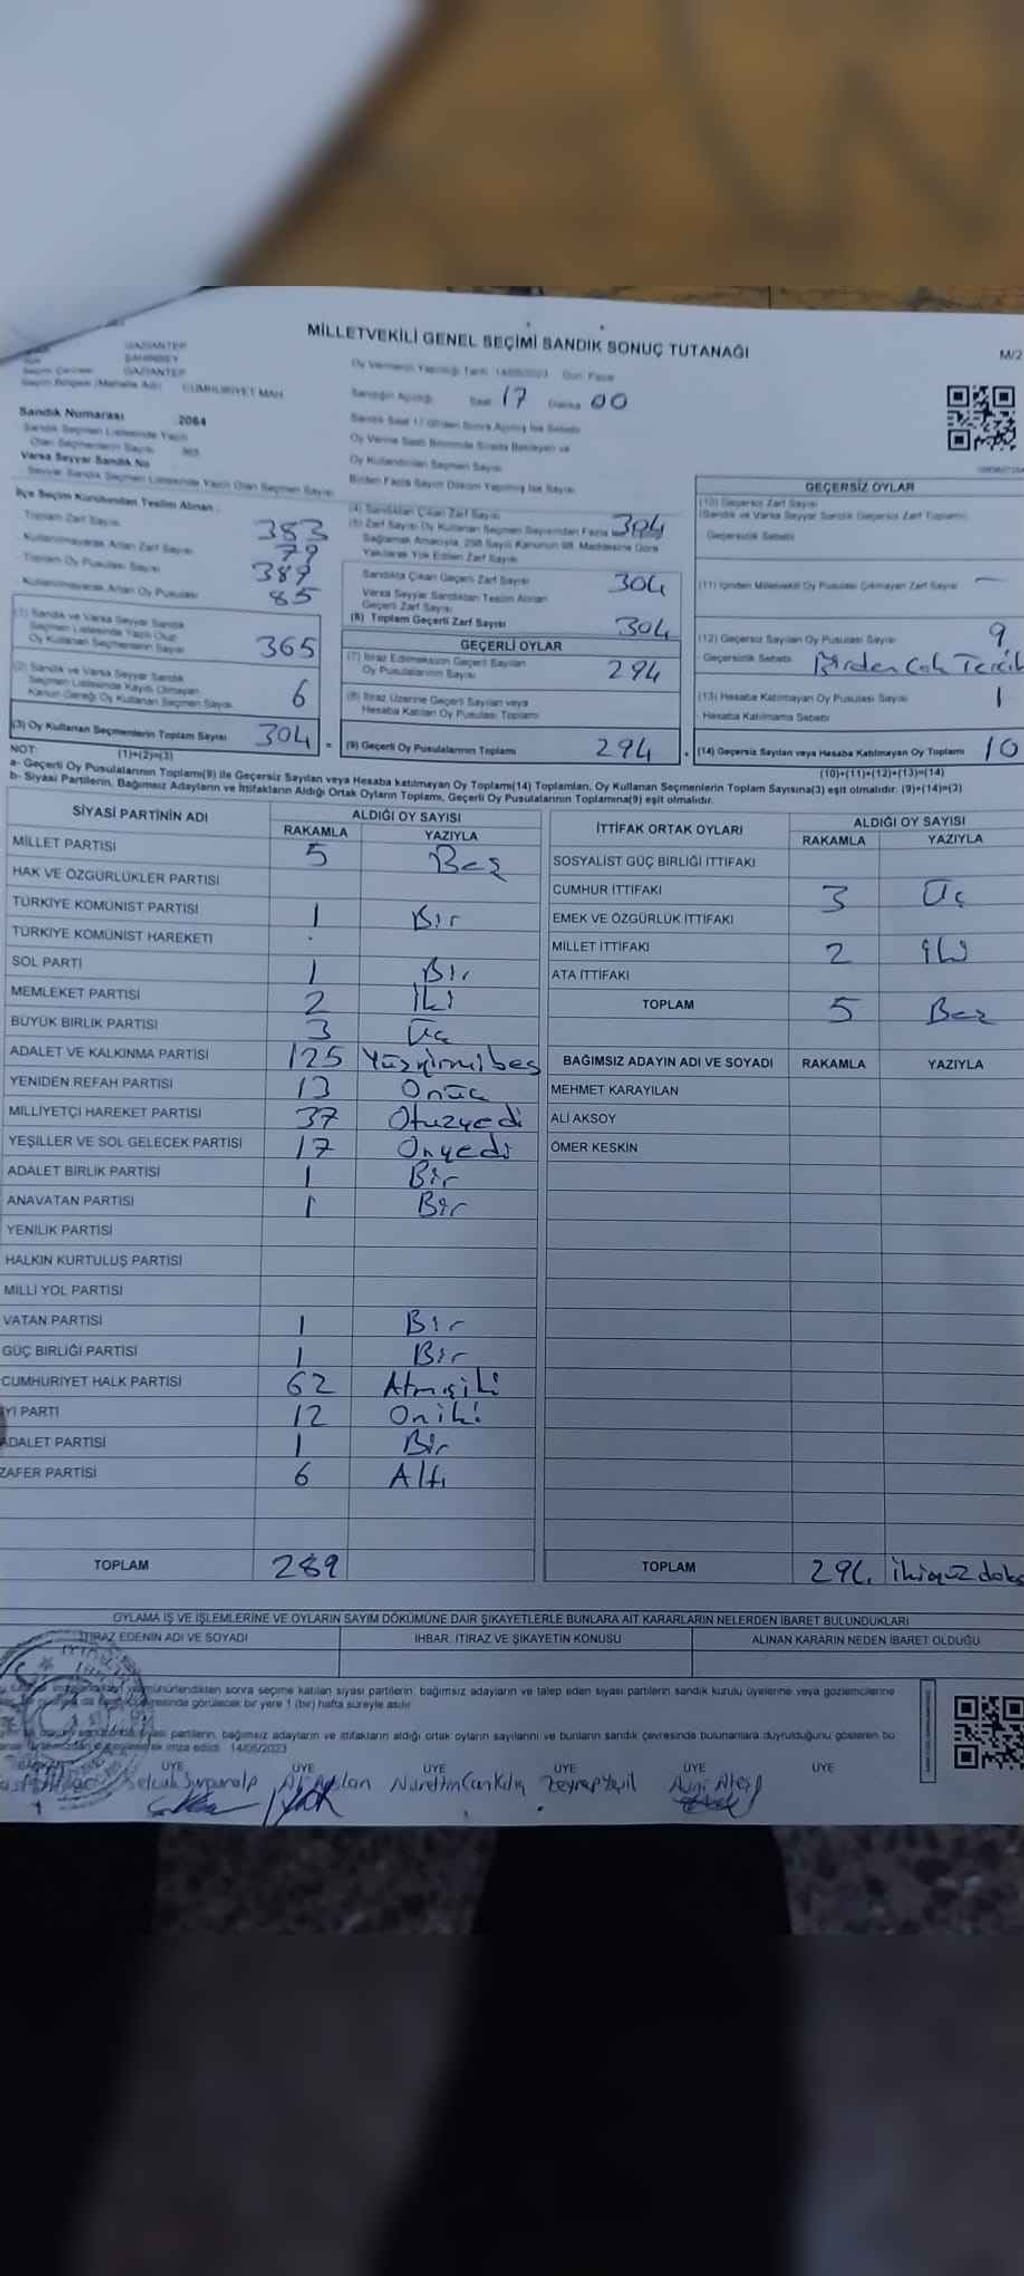 MİLLETVEKİLİ GENEL SEÇİMİ SANDIK SONUÇ TUTANAĞI
M/2
GAZİANTEP
ŞAHİNBEY
GAZİANTEP
CUMHURİYET MAH
Oy Vermenin Yapıldığı Tarih 14/05/2023 Gün Pazar
Sandığın Açıldığı Saat 17 Dakika 00
Sandık Numarası 2064
Sandık Seçmen Listesinde Yazılı
Olan Seçmenlerin Sayısı 365
Varsa Seyyar Sandık No
Seyyar Sandık Seçmen Listesinde Yazılı Olan Seçmen Sayısı
Oy Kullandırılan Seçmen Sayısı
Birden Fazla Sayım Döküm Yapılmış İse Sayısı
İlçe Seçim Kurulundan Teslim Alınan
Toplam Zarf Sayısı 383
Kullanılmayarak Artan Zarf Sayısı 79
Toplam Oy Pusulası Sayısı 389
Kullanılmayarak Artan Oy Pusulası 85
(1) Sandık ve Varsa Seyyar Sandık
Seçmen Listesinde Yazılı Olup
Oy Kullanan Seçmenlerin Sayısı 365
(2) Sandık ve Varsa Seyyar Sandık
Seçmen Listesinde Kayıtlı Olmayan
Kanun Gereği Oy Kullanan Seçmen Sayısı 6
(3) Oy Kullanan Seçmenlerin Toplam Sayısı 304 =
(1)+(2)=(3)
(4) Sandıktan Çıkan Zarf Sayısı 304
Sandıkta Çıkan Geçerli Zarf Sayısı 304
Varsa Seyyar Sandıktan Teslim Alınan
Geçerli Zarf Sayısı
(6) Toplam Geçerli Zarf Sayısı 304
GEÇERLİ OYLAR
(7) İtiraz Edilmeksizin Geçerli Sayılan
Oy Pusulalarının Sayısı 294
(8) İtiraz Üzerine Geçerli Sayılan veya
Hesaba Katılan Oy Pusulası Toplamı
(9) Geçerli Oy Pusulalarının Toplamı 294
GEÇERSİZ OYLAR
(10) Geçersiz Zarf Sayısı
(Sandık ve Varsa Seyyar Sandık Geçersiz Zarf Toplamı)
Geçersizlik Sebebi
(11) İçinden Milletvekili Oy Pusulası Çıkmayan Zarf Sayısı —
(12) Geçersiz Sayılan Oy Pusulası Sayısı 9
Geçersizlik Sebebi Birden Çok Tercih
(13) Hesaba Katılmayan Oy Pusulası Sayısı 1
Hesaba Katılmama Sebebi
(14) Geçersiz Sayılan veya Hesaba Katılmayan Oy Toplamı 10
(10)+(11)+(12)+(13)=(14)
NOT:
a- Geçerli Oy Pusulalarının Toplamı(9) ile Geçersiz Sayılan veya Hesaba katılmayan Oy Toplamı(14) Toplamları, Oy Kullanan Seçmenlerin Toplam Sayısına(3) eşit olmalıdır. (9)+(14)=(3)
b- Siyasi Partilerin, Bağımsız Adayların ve İttifakların Aldığı Ortak Oyların Toplamı, Geçerli Oy Pusulalarının Toplamına(9) eşit olmalıdır.
SİYASİ PARTİNİN ADI ALDIĞI OY SAYISI
RAKAMLA YAZIYLA
MİLLET PARTİSİ 5 Beş
HAK VE ÖZGÜRLÜKLER PARTİSİ
TÜRKİYE KOMÜNİST PARTİSİ 1 Bir
TÜRKİYE KOMÜNİST HAREKETİ
SOL PARTİ 1 Bir
MEMLEKET PARTİSİ 2 İki
BÜYÜK BİRLİK PARTİSİ 3 Üç
ADALET VE KALKINMA PARTİSİ 125 Yüzyirmibeş
YENİDEN REFAH PARTİSİ 13 Onüç
MİLLİYETÇİ HAREKET PARTİSİ 37 Otuzyedi
YEŞİLLER VE SOL GELECEK PARTİSİ 17 Onyedi
ADALET BİRLİK PARTİSİ 1 Bir
ANAVATAN PARTİSİ 1 Bir
YENİLİK PARTİSİ
HALKIN KURTULUŞ PARTİSİ
MİLLİ YOL PARTİSİ
VATAN PARTİSİ 1 Bir
GÜÇ BİRLİĞİ PARTİSİ 1 Bir
CUMHURİYET HALK PARTİSİ 62 Atmışiki
İYİ PARTİ 12 Oniki
ADALET PARTİSİ 1 Bir
ZAFER PARTİSİ 6 Altı
TOPLAM 289
İTTİFAK ORTAK OYLARI ALDIĞI OY SAYISI
RAKAMLA YAZIYLA
SOSYALİST GÜÇ BİRLİĞİ İTTİFAKI
CUMHUR İTTİFAKI 3 Üç
EMEK VE ÖZGÜRLÜK İTTİFAKI
MİLLET İTTİFAKI 2 iki
ATA İTTİFAKI
TOPLAM 5 Beş
BAĞIMSIZ ADAYIN ADI VE SOYADI RAKAMLA YAZIYLA
MEHMET KARAYILAN
ALİ AKSOY
ÖMER KESKİN
TOPLAM 294 ikiyüzdoks
OYLAMA İŞ VE İŞLEMLERİNE VE OYLARIN SAYIM DÖKÜMÜNE DAİR ŞİKAYETLERLE BUNLARA AİT KARARLARIN NELERDEN İBARET BULUNDUKLARI
İTİRAZ EDENİN ADI VE SOYADI İHBAR, İTİRAZ VE ŞİKAYETİN KONUSU ALINAN KARARIN NEDEN İBARET OLDUĞU
sonra seçime katılan siyasi partilerin, bağımsız adayların ve talep eden siyasi partilerin sandık kurulu üyelerine veya gözlemcilerine
görülecek bir yere 1 (bir) hafta süreyle asılır
partilerin, bağımsız adayların ve ittifakların aldığı ortak oyların sayılarını ve bunların sandık çevresinde bulunanlara duyrulduğunu gösteren bu
imza edildi. 14/05/2023
ÜYE ÜYE ÜYE ÜYE ÜYE ÜYE
Nurettin Can Kılıç Zeynep Yeşil Avni Ateş